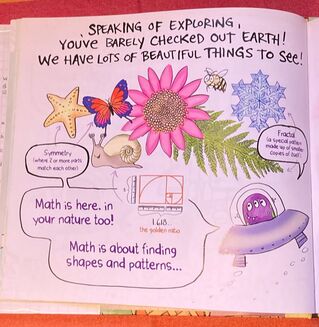 SPEAKING OF EXPLORING,
YOU'VE BARELY CHECKED OUT EARTH!
WE HAVE LOTS OF BEAUTIFUL THINGS TO SEE!
Symmetry
(where 2 or more parts
match each other)
Fractal
(a special pattern
made up of smaller
copies of itself)
1.618...
the golden ratio
Math is here, in
your nature too!
Math is about finding
shapes and patterns...